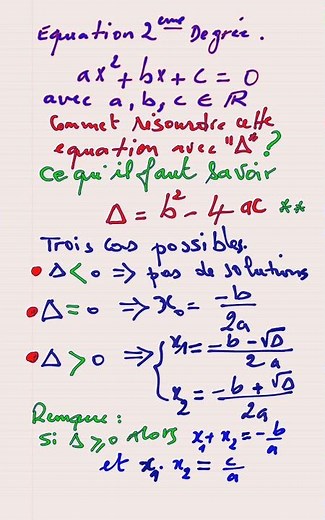 Equation 2ème Degrée.
ax² + bx + c = 0
avec a, b, c ∈ ℝ
Commet résoundre cette
equation avec "Δ" ?
Ce qu'il faut savoir
Δ = b² - 4 ac **
Trois cas possibles.
• Δ < 0 ⇒ pas de solutions
• Δ = 0 ⇒ x₀ = -b / 2a
• Δ > 0 ⇒ { x₁ = -b - √Δ / 2a
x₂ = -b + √Δ / 2a
Remarque :
si Δ ≥ 0 alors x₁ + x₂ = - b/a
et x₁ . x₂ = c/a